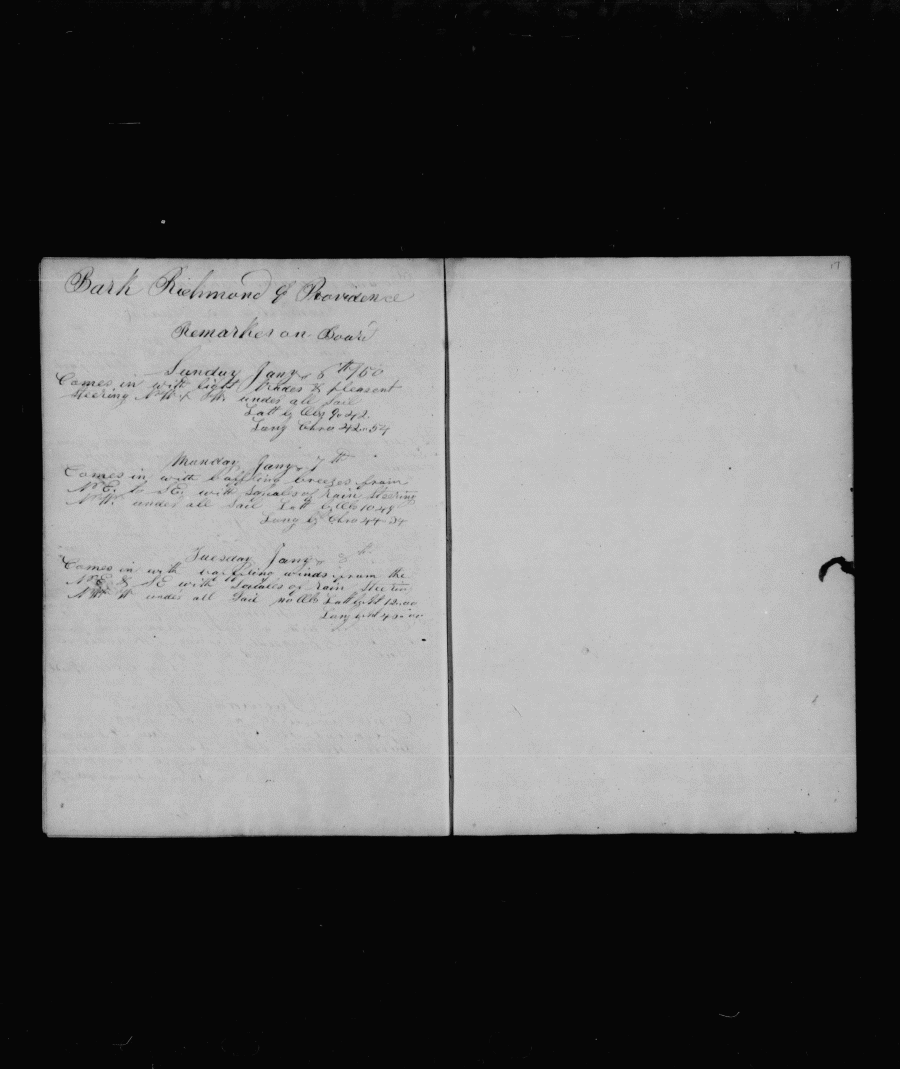 17
Bark Richmond of Providence
Remarks on Board
Sunday Jany 6th/50
Comes in with light trades & pleasent
steering N.W. under all Sail
Latt by Obs 9.42
Long Chro 42.54
Monday Jany 7th
Comes in with baffling breezes from
N.E. to SE. with Squales of rain Steering
N.W. under all Sail Latt by Obs 10.49
Long by Chro 44.34
Tuesday Jany 8th
Comes in with baffeling winds from the
N.E. & SE with Squales of rain Steering
under all Sail no Obs Latt by 12.00
Long by